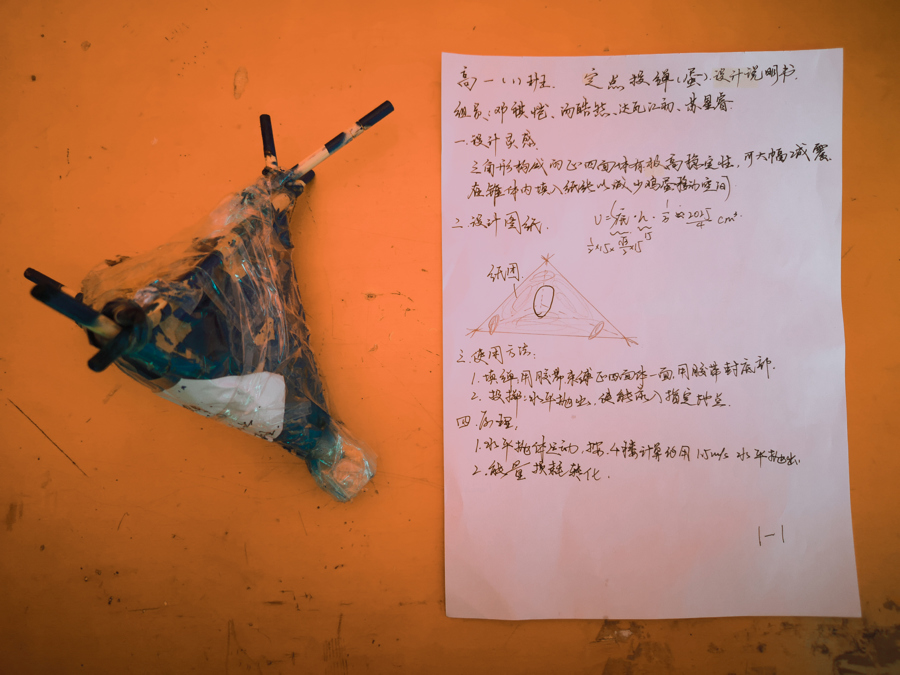 高一(1)班. 定点投弹(蛋).设计说明书.
组员:邓祺恺、汤皓然、达瓦江初、苏星睿.
一.设计灵感.
三角形构成的正四面体有极高稳定性,可大幅减震.
在锥体内填入纸张以减少鸡蛋移动空间
二.设计图纸.
V=底·h·1/3≈2025/4 cm³.
1/2×15×√3/2×15
15
纸团
三.使用方法:
1.填弹:用胶带束缚正四面体一面,用胶带封底部.
2.投掷:水平抛出,使能落入指定地点.
四.原理.
1.水平抛体运动,按4楼计算约用1.5m/s水平抛出.
2.能量损耗转化.
1-1